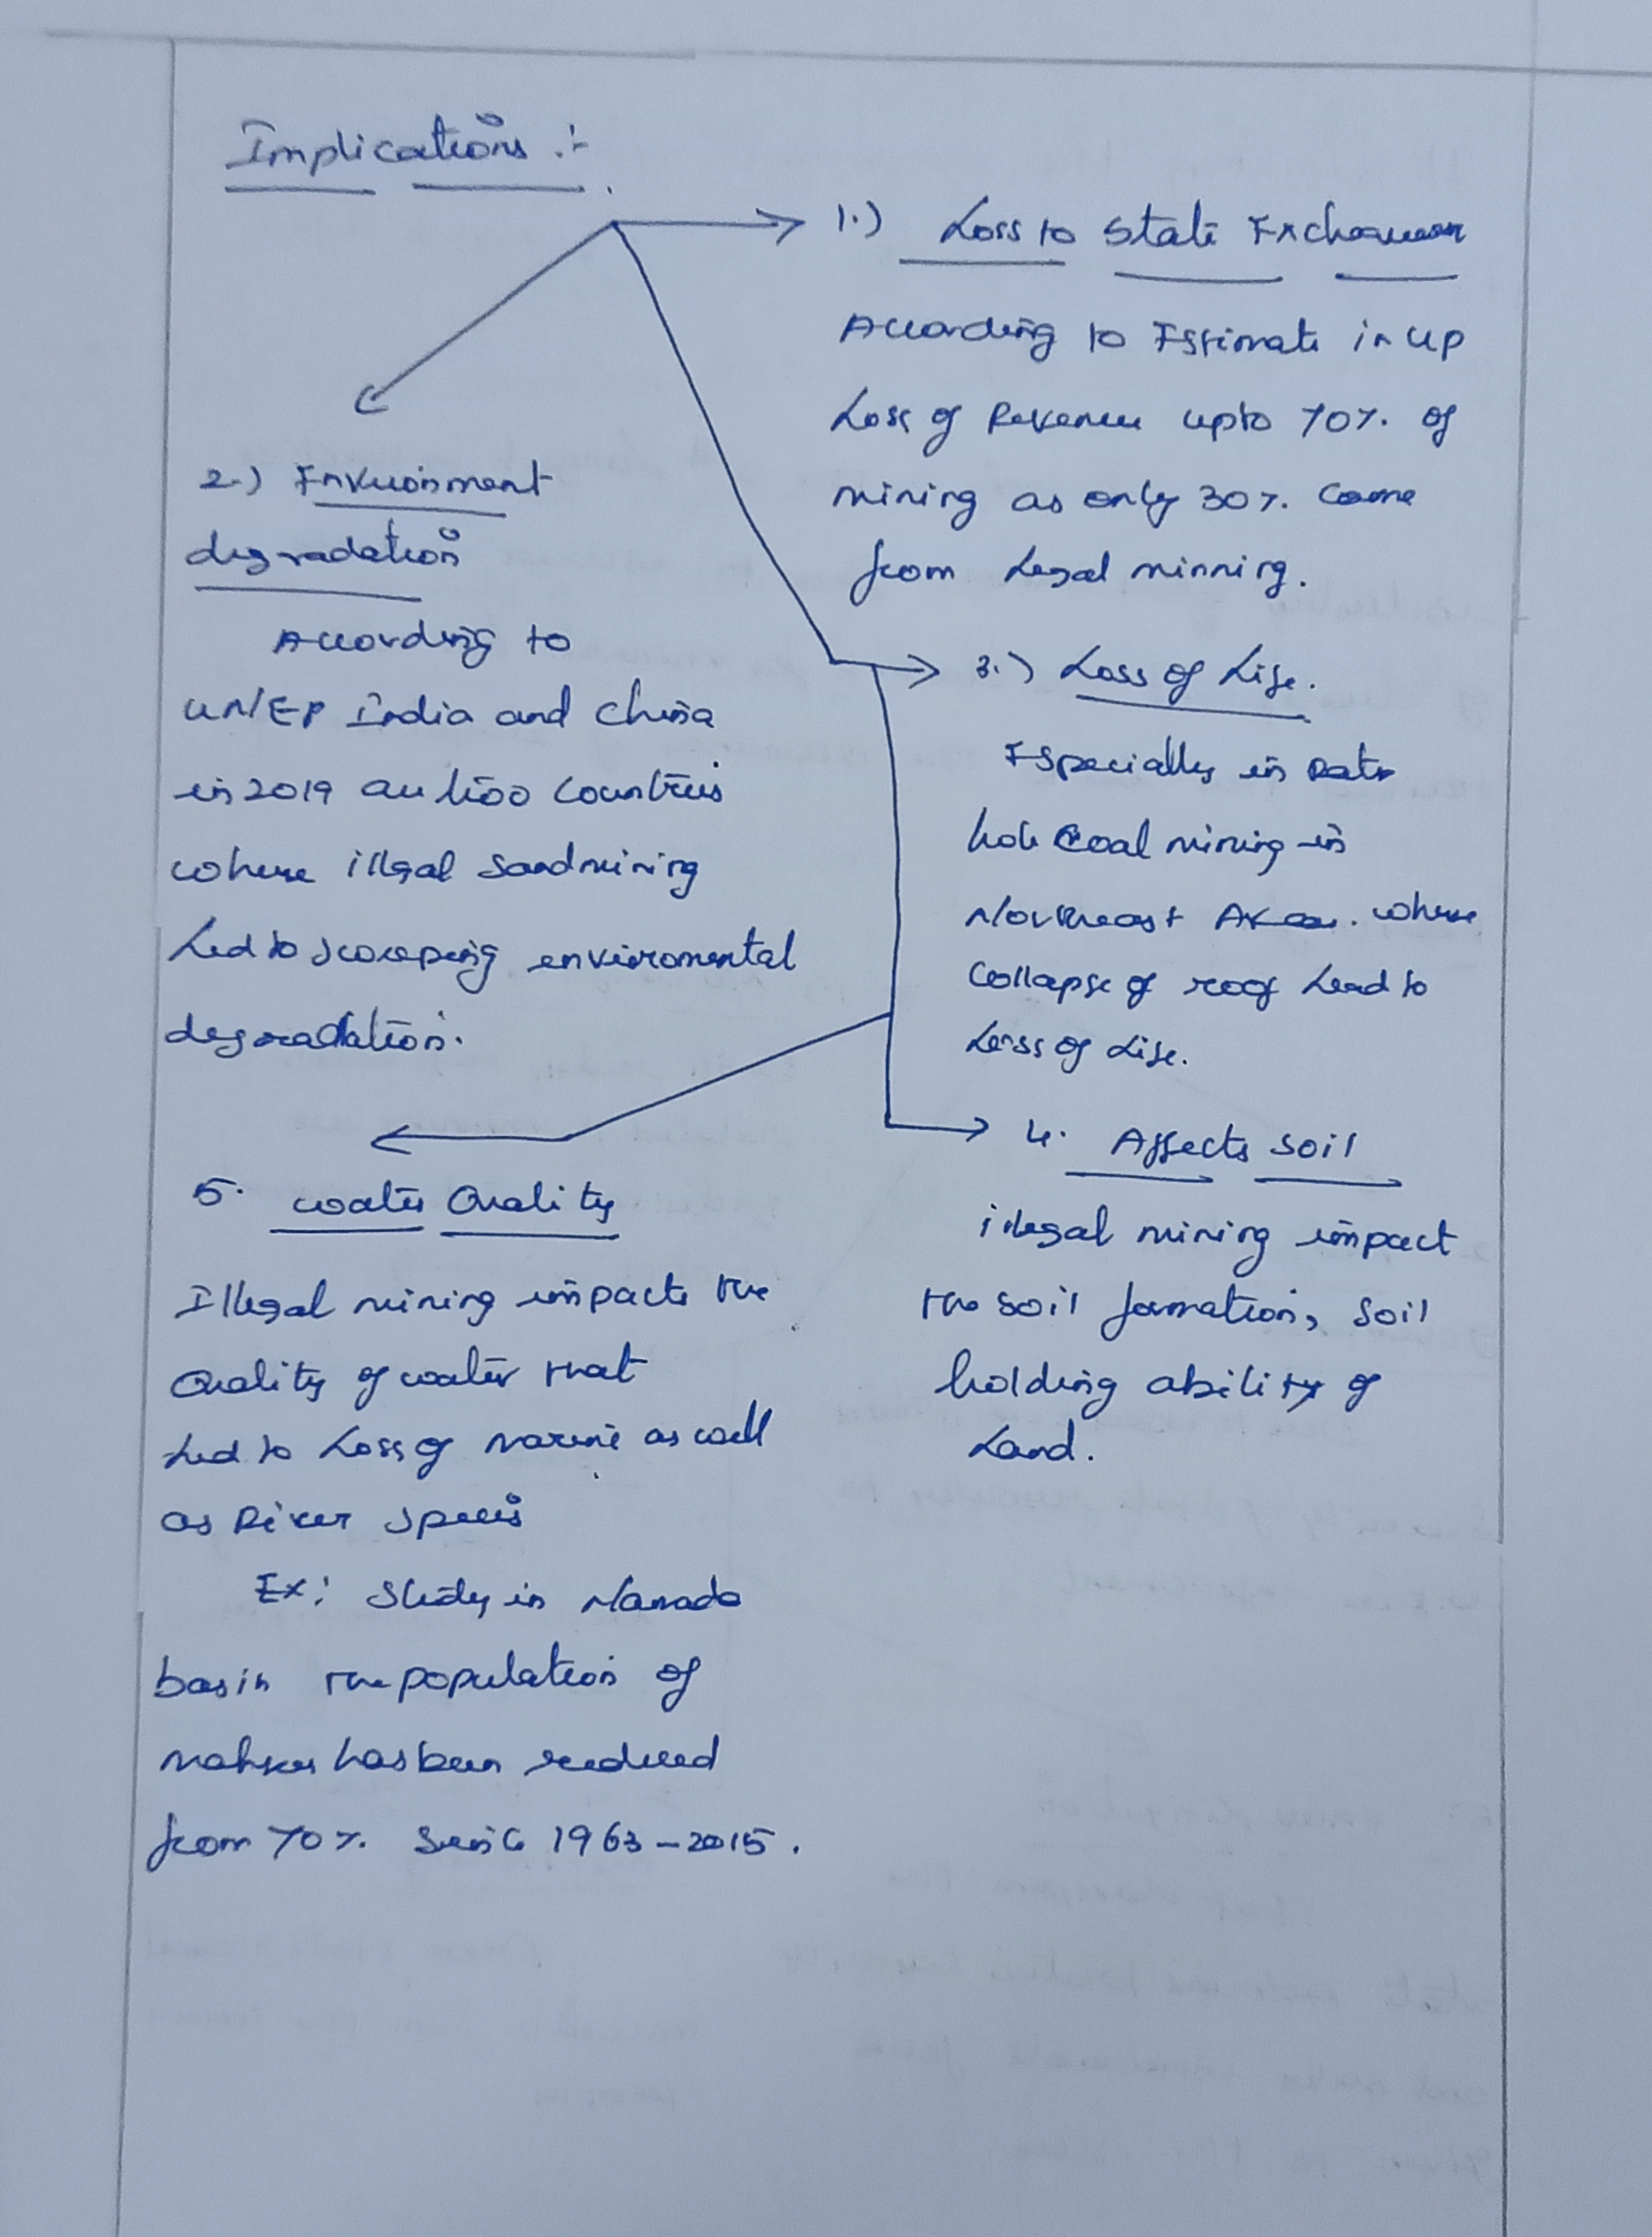 Implications :-
1.) Loss to State Exchequer
According to Estimate in UP
Loss of Revenue upto 70% of
mining as only 30% come
from Legal minning.
2.) Environment
degradation
According to
UNEP India and China
in 2019 are two countries
where illegal sandmining
Led to sweeping enviromental
degradation.
3.) Loss of Life.
Especially in Rat
hole Coal mining in
Northeast where
Collapse of roof Lead to
Loss of Life.
4. Affects Soil
illegal mining impact
the soil formation, soil
holding ability of
Land.
5. Water Quality
Illegal mining impacts the
Quality of water that
Led to Loss of marine as well
as River species
Ex: Study in Narmada
basin the population of
mahseer has been reduced
from 70% Since 1963-2015.